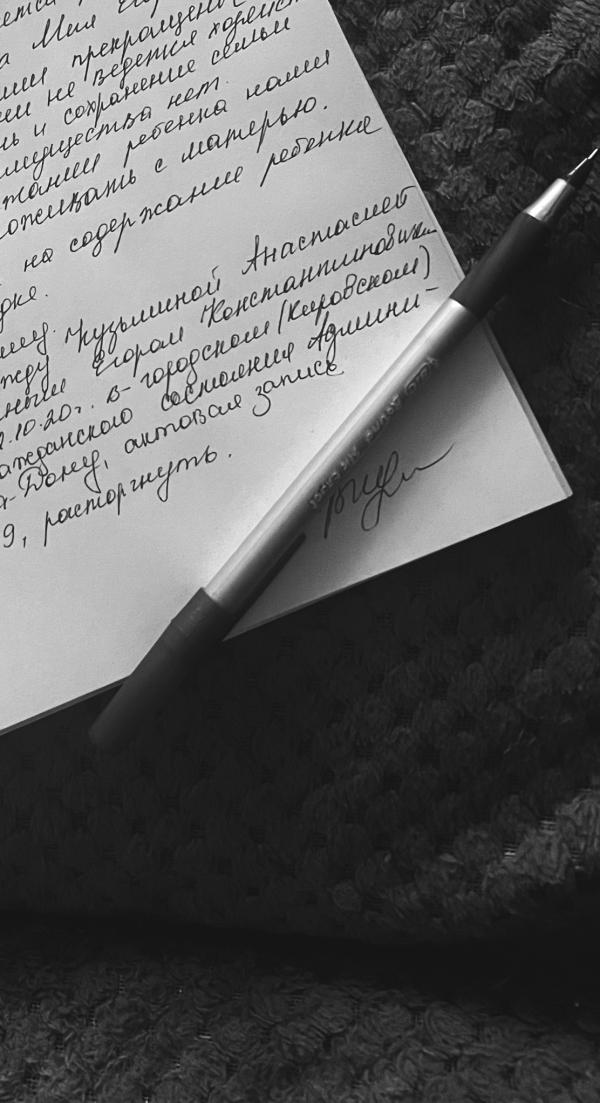 ается
а Мия Егор
ии прекращен
ен не ведется хозяйст
ь и сохранение семьи
мущества нет.
тании ребенка нами
оживать с матерью.
на содержание ребенка
дке.
жду Кузьминой Анастасией
ным Егором Константинович
2.10.20г. в городском (Кировском)
ажданского состояния Админи-
а-Дону, актовая запись
9, расторгнуть.